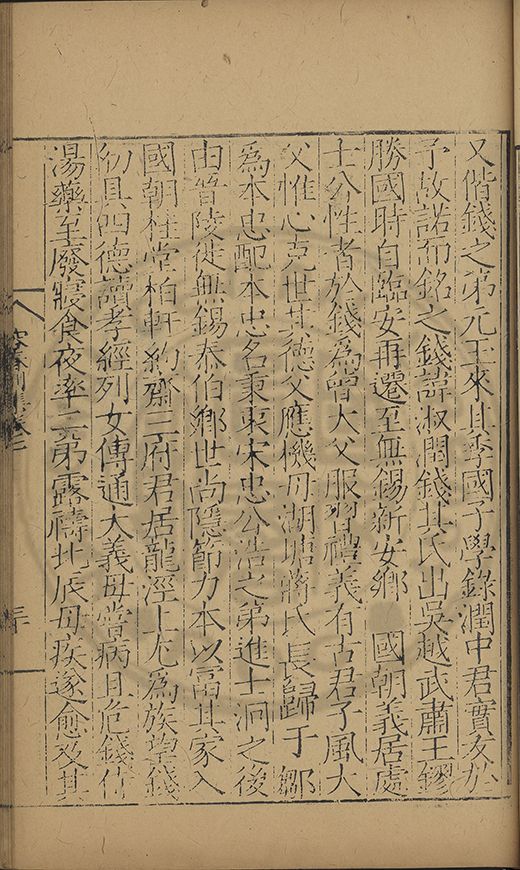 又偕錢之弟元玉來且季國子學錄潤中君實友於
予故諾而銘之錢諱淑潤錢其氏出吳越武肅王鏐
勝國時自臨安再遷至無錫新安鄉 國朝義居處
士公性者於錢爲曾大父服習禮義有古君子風大
父惟心克世其德父應機母湖塘蔣氏長歸于鄒
爲本忠配本忠名秉衷宋忠公浩之弟進士洞之後
由晉陵徙無錫泰伯鄉世尚隱節力本以富其家入
國朝住堂柏軒約齋三府君居龍涇上尤爲族望錢
幼具四德讀孝經列女傳通大義母嘗病且危錢侍
湯藥至廢寢食夜率二弟露禱北辰母疾遂愈及其